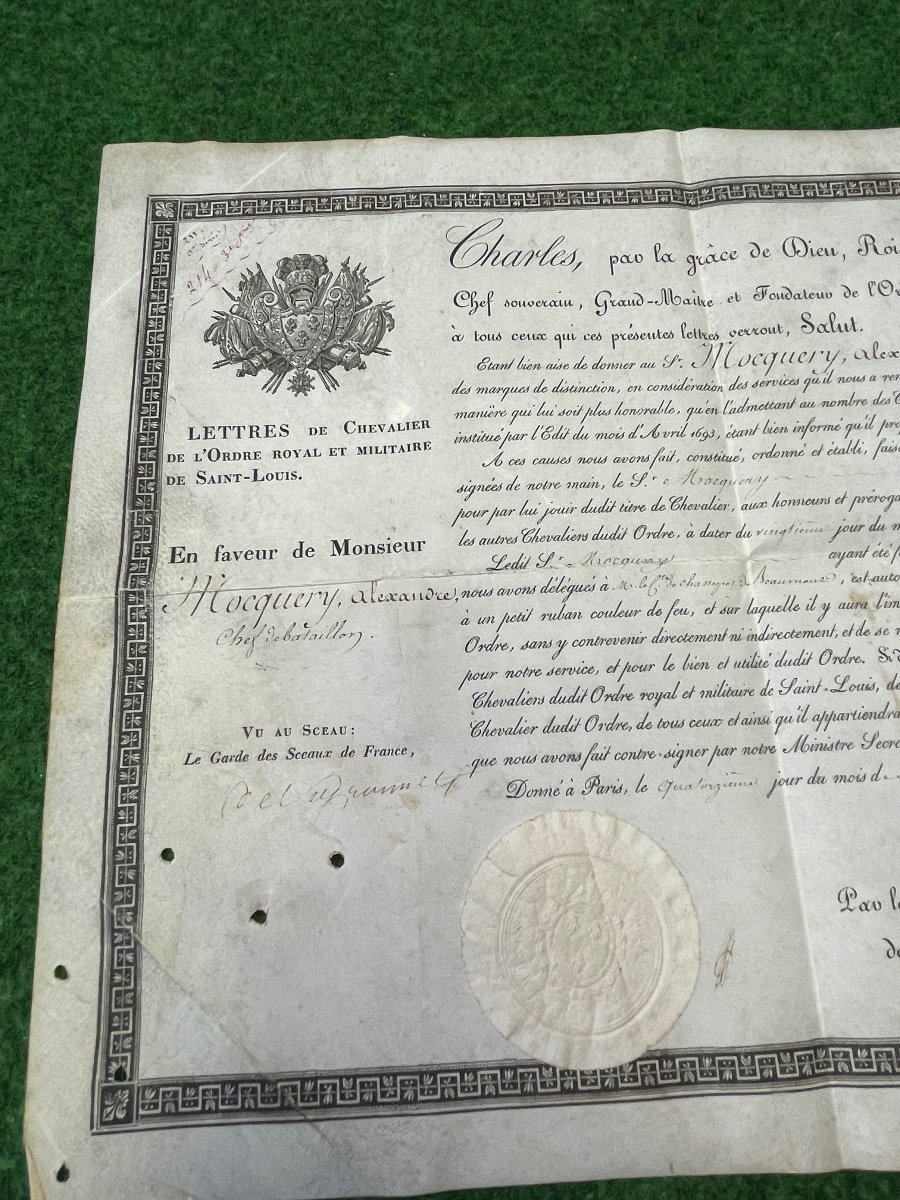 214
LETTRES DE CHEVALIER
DE L'ORDRE ROYAL ET MILITAIRE
DE SAINT-LOUIS.
En faveur de Monsieur
Mocquery, Alexandre,
Chef de bataillon.
VU AU SCEAU:
Le Garde des Sceaux de France,
Charles, par la grâce de Dieu, Roi
Chef souverain, Grand-Maître et Fondateur de l'Or
à tous ceux qui ces présentes lettres verront, Salut.
Etant bien aise de donner au Sr. Mocquery, Alex
des marques de distinction, en considération des services qu'il nous a ren
manière qui lui soit plus honorable, qu'en l'admettant au nombre des C
institué par l'Edit du mois d'Avril 1693, étant bien informé qu'il pro
A ces causes nous avons fait, constitué, ordonné et établi, fais
signées de notre main, le Sr. Mocquery
pour par lui jouir dudit titre de Chevalier, aux honneurs et préroga
les autres Chevaliers dudit Ordre, à dater du vingtième jour du m
Ledit Sr. Mocquery ayant été f
nous avons délégué à Mr. le Cte. de Beaumont, est auto
à un petit ruban couleur de feu, et sur laquelle il y aura l'im
Ordre, sans y contrevenir directement ni indirectement, et de se r
pour notre service, et pour le bien et utilité dudit Ordre. Si d
Chevaliers dudit Ordre royal et militaire de Saint-Louis, de
Chevalier dudit Ordre, de tous ceux et ainsi qu'il appartiendra
que nous avons fait contre-signer par notre Ministre Secré
Donné à Paris, le quatorzième jour du mois d
Par le
de